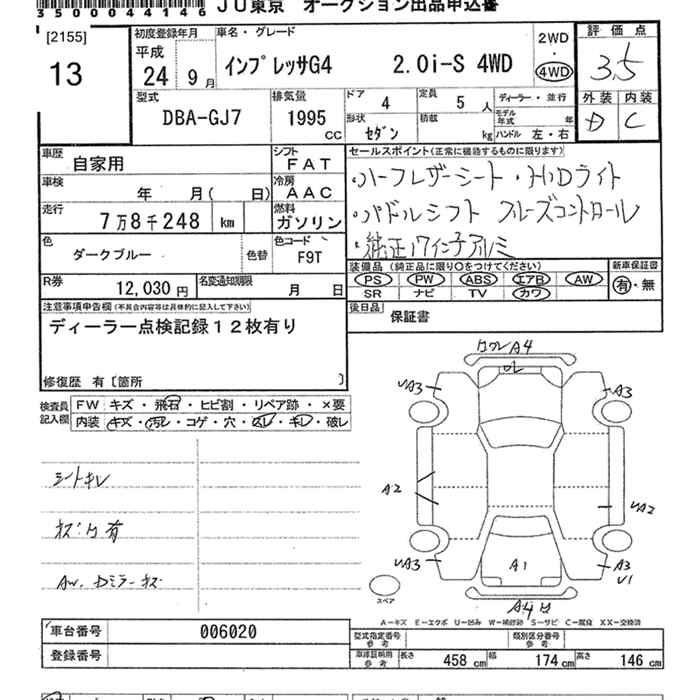 JU東京 オークション出品申込書
3500044146
[2155]
13
初度登録年月
平成
24年9月
車名・グレード
インプレッサG4 2.0i-S 4WD
2WD
・
4WD
評価点
3.5
外装 内装
D C
型式
DBA-GJ7
排気量
1995
CC
ドア 4
定員 5 人
ディーラー・並行
モデル年式 年
形状 セダン
積載 kg
ハンドル 左・右
車歴
自家用
シフト
FAT
車検
年 月( 日)
冷房
AAC
走行
7万8千248 km
燃料
ガソリン
色
ダークブルー
色替
色コード
F9T
R券
12,030 円
名変通知期限
月 日
セールスポイント(正常に機能するものに限ります)
・ハーフレザーシート・HIDライト
・パドルシフト クルーズコントロール
・純正17インチアルミ
装備品(純正品に限り○をつけてください)
PS PW ABS エアB AW
SR ナビ TV カワ
新車保証書
有・無
後日品
保証書
注意事項申告欄(不具合内容等は具体的に記入して下さい)
ディーラー点検記録12枚有り
修復歴 有[箇所 ]
検査員記入欄
FW キズ・飛石・ヒビ割・リペア跡・×要
内装 キズ・汚レ・コゲ・穴・スレ・キレ・破レ
シートキレ
AW、Dミラーキズ
A4
UA3
A3
A2
UA2
UA3
A1
A3
U1
A4
スペア
A−キズ E−エクボ U−凹み W−補修跡 S−サビ C−腐食 XX−交換済
車台番号
006020
登録番号
型式指定番号
参考
類別区分番号
参考
車庫証明用
参考
長さ 458 cm
幅 174 cm
高さ 146 cm